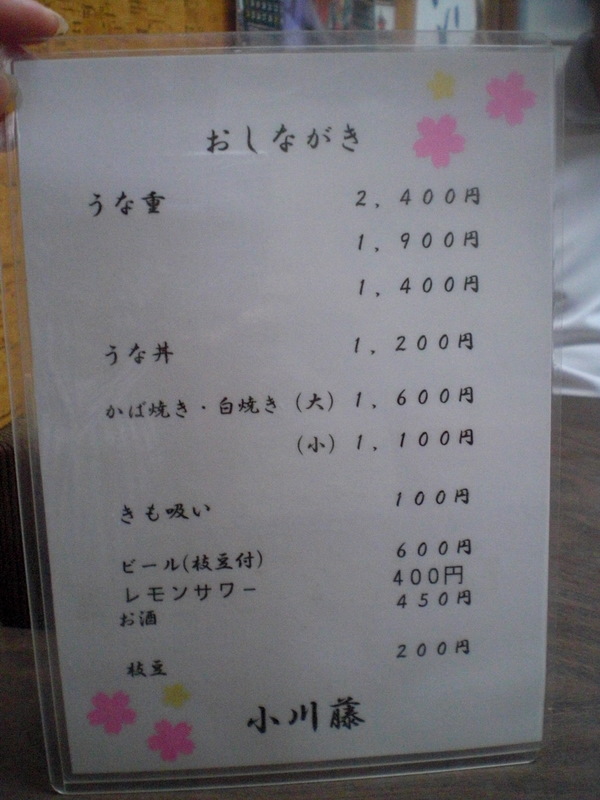 おしながき
うな重 2,400円
1,900円
1,400円
うな丼 1,200円
かば焼き・白焼き (大) 1,600円
(小) 1,100円
きも吸い 100円
ビール(枝豆付) 600円
レモンサワー 400円
お酒 450円
枝豆 200円
小川藤